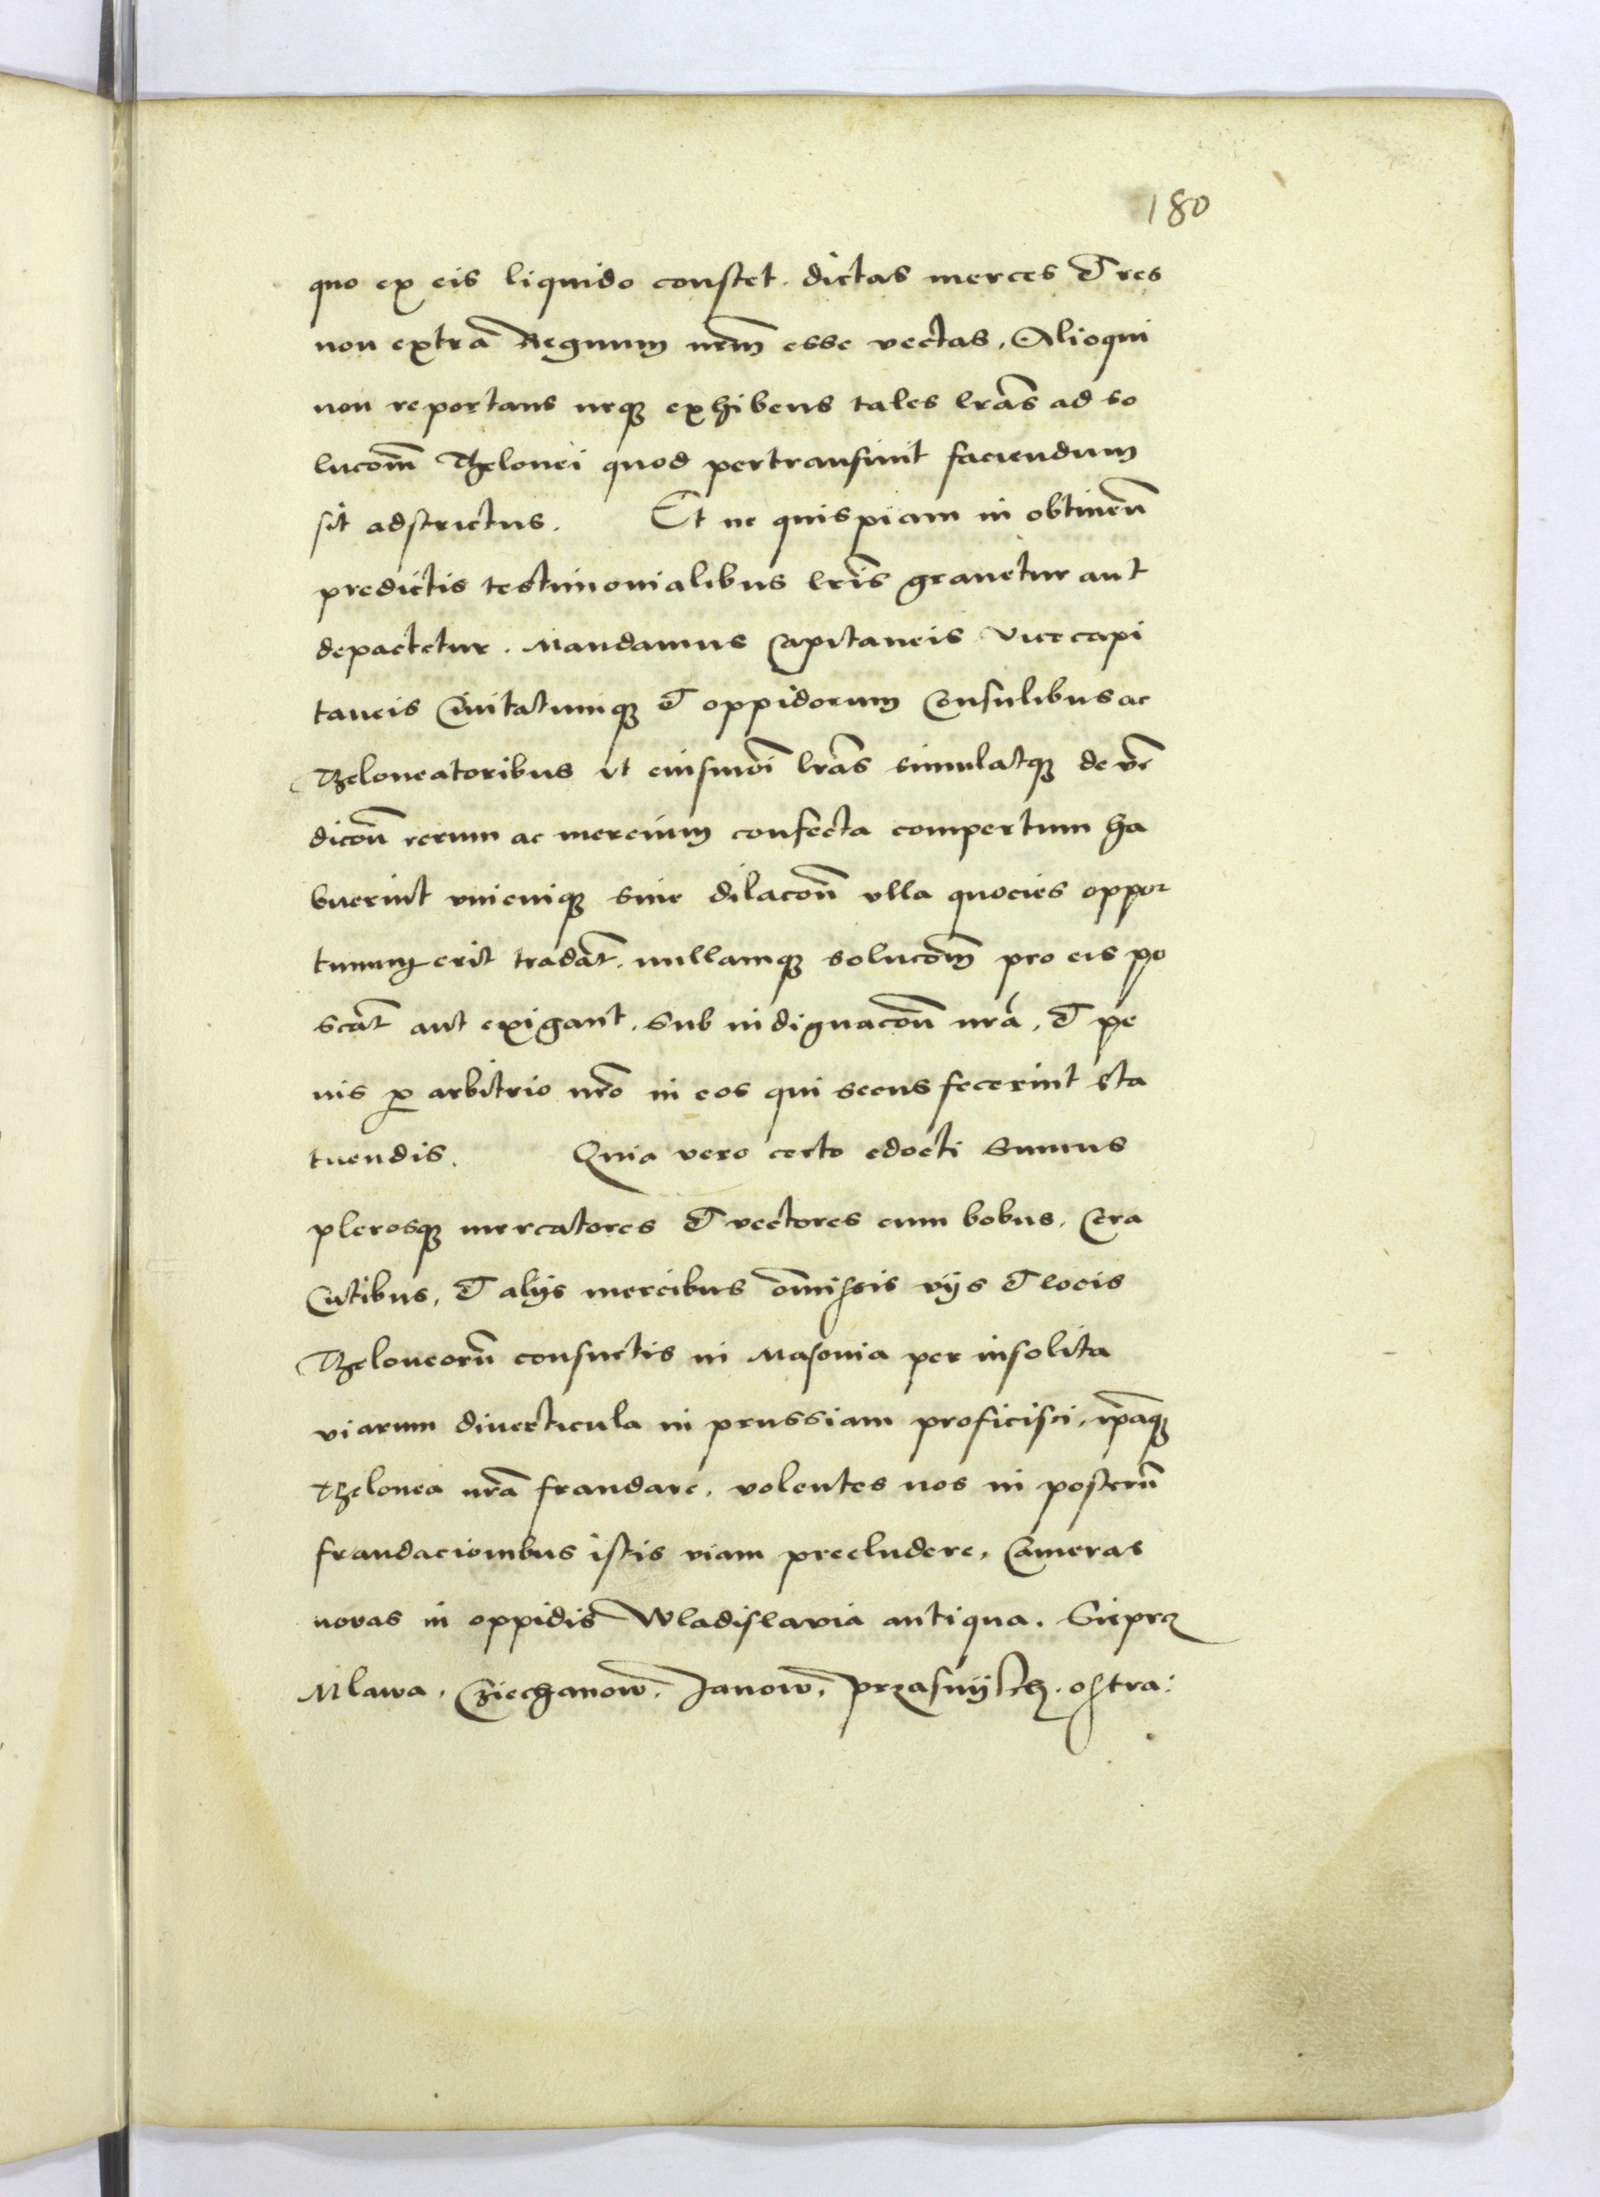 180
quo ex eis liquido constet. dictas merces et res
non extra Regnum nrm̄ esse vectas, Alioqui
non reportans neqȝ exhibens tales lrās ad so
lucom̄ Thelonei quod pertransiuit faciendum
sit adstrictus. Et ne quispiam in obtineñ
predictis testimonialibus lrīs grauetur aut
depactetur. Mandamus Capitaneis Vicecapi
taneis Ciuitatumqȝ et oppidorum Consulibus ac
Theloneatoribus vt eiusmoī lrās simulatqȝ de vē
dicoñ rerum ac mercium confecta compertum ha
buerint vnicuiqȝ sine dilacoñ vlla quocies oppor
tunum erit tradāt. nullamqȝ solucom̄ pro eis po
scāt aut exigant. Sub indignacoñ nrā, et pe
nis p̱ arbitrio nr̄o in eos qui secus fecerint sta
tuendis. Quia vero certo edocti Sumus
plerosqȝ mercatores et vectores cum bobus. Cera
Cutibus, et alijs mercibus om̄issis vijs et locis
Theloneorū consuetis in Masouia per insolita
viarum diuerticula in prussiam proficisci, ip̄aqȝ
Thelonea nrā fraudare, volentes nos in posterū
fraudacionibus istis viam precludere, Cameras
novas in oppidis Wladislavia antiqua. Sieprcz
Mlawa. Cziechanow. Janow. Przasnijsch. ostra: